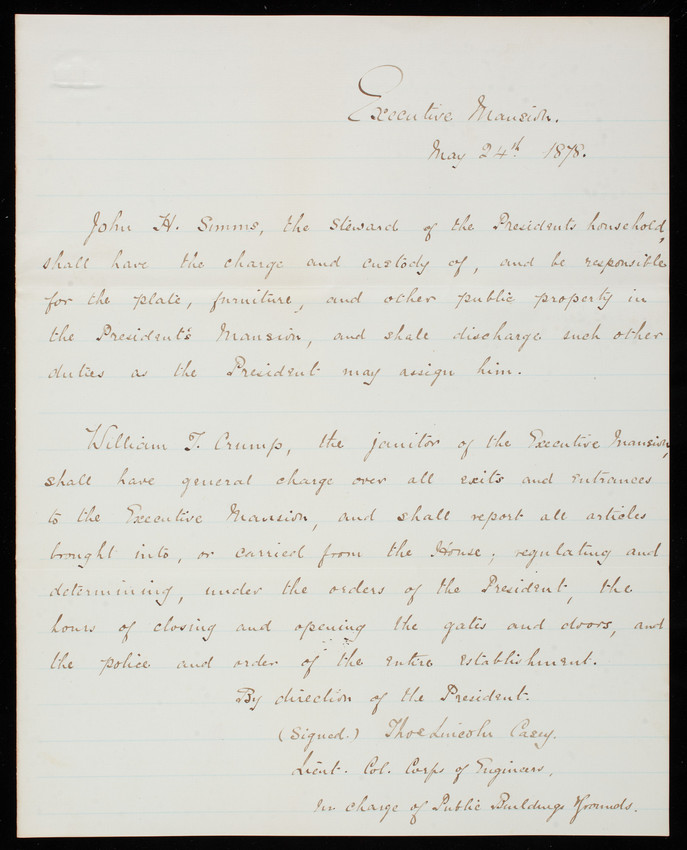 Executive Mansion.
May 24th 1878.
John H. Simms, the Steward of the Presidents household,
shall have the charge and custody of, and be responsible
for the plate, furniture, and other public property in
the President's Mansion, and shall discharge such other
duties as the President may assign him.
William T. Crump, the janitor of the Executive Mansion,
shall have general charge over all exits and entrances
to the Executive Mansion, and shall report all articles
brought into, or carried from the House; regulating and
determining, under the orders of the President, the
hours of closing and opening the gates and doors, and
the police and order of the entire establishment.
By direction of the President.
(Signed.) Thos Lincoln Casey.
Lieut. Col. Corps of Engineers,
In charge of Public Buildings Grounds.